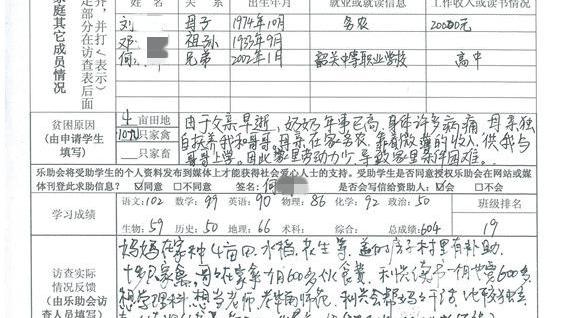 姓名 关系 出生年月 就业或就读信息 工作收入或读书情况
家庭其它成员情况
刘 母子 1974年10月 务农 20000元
邓 祖孙 1933年9月
何 兄弟 2002年1月 韶关中等职业学校 高中
贫困原因
(由申请学生
填写)
4亩田地
10几只家禽
只家畜
由于父亲早逝,奶奶年事已高,身体许多病痛,母亲独
自扶养我和哥哥。母亲在家务农,靠着微薄的收入,供我与
哥哥上学。因此家里劳动力少,导致家里条件困难。
乐助会将受助学生的个人资料发布到媒体上才能获得社会爱心人士的支持。受助学生是否同意授权乐助会在网站或媒
体刊登此求助信息? ☑同意 □不同意 签名: 何 是否会写信给资助人: ☑会 □不会
学习成绩
语文:102 数学:99 英语:90 物理:86 化学:92 政治:50
生物:59 历史:50 地理:66 术科: 综合: 总成绩:604
班级排名
19
访查实际
情况反馈
(由乐助会访
查人员填写)
妈妈在家种4亩田,水稻、花生等,盖的房子村里有补助,
十多只家禽,
想学理科,想当老师,